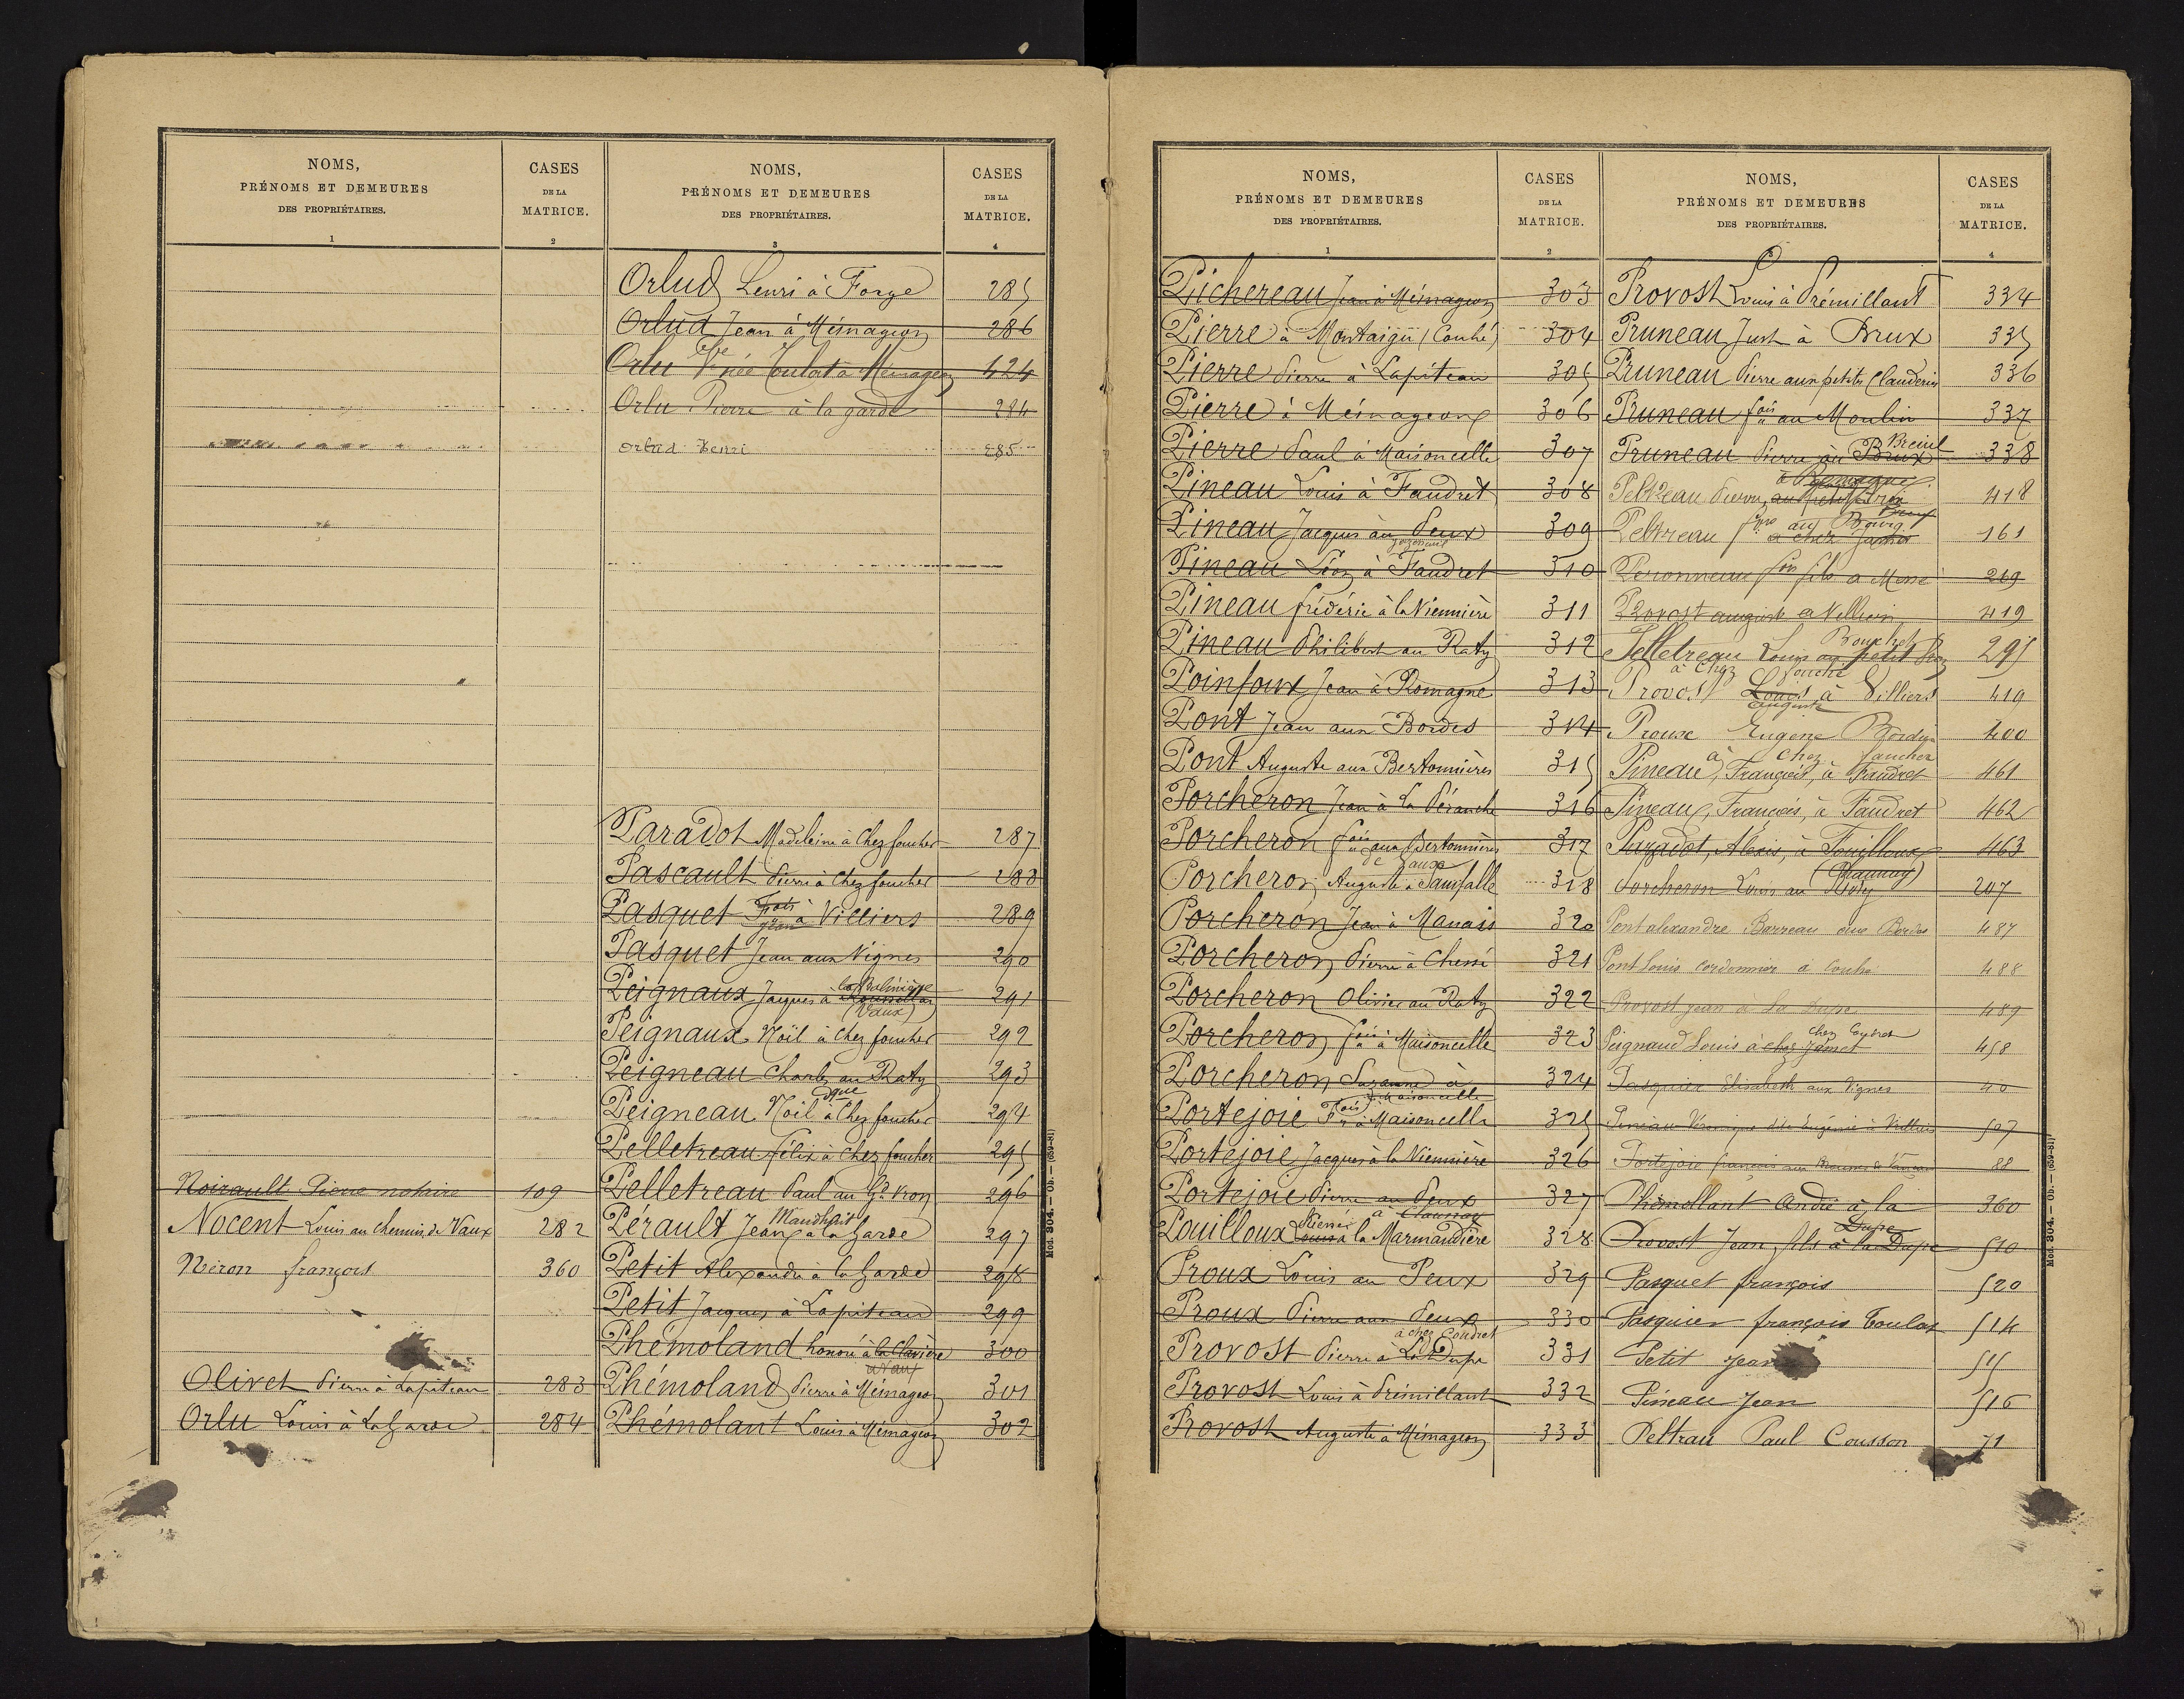 NOMS,
PRÉNOMS ET DEMEURES
DES PROPRIÉTAIRES.
1
CASES
DE LA
MATRICE.
2
Noirault Pierre notaire 109
Nocent Louis au chemin de Vaux 282
Néron françois 360
Olivet Pierre à Lapiteau 283
Orlu Louis à La Garde 284
NOMS,
PRÉNOMS ET DEMEURES
DES PROPRIÉTAIRES.
3
CASES
DE LA
MATRICE.
4
Orlud Henri à Forge 285
Orlud Jean à Mémageon 286
Orlu Vve née Toulat à Mémageon 424
Orlu Pierre à la garde 284
Orlud Henri 285
Paradot Madeleine à Chez foucher 287
Pascault Pierre à Chez foucher 288
Pasquet Fois Jean à Villiers 289
Pasquet Jean aux Vignes 290
Peignaux Jacques à (Vaux) 291
Peignaux Noël à Chez foucher 292
Peigneau Charles au Raty 293
Peigneau Noël à Chez foucher 294
Pelletreau félix à Chez foucher 295
Pelletreau Paul au Gd Vron 296
Pérault Jean à la Garde 297
Petit Alexandre à la Garde 298
Petit Jacques à Lapiteau 299
Phémoland honoré à la Clavière à Vaux 300
Phémoland Pierre à Mémageon 301
Phémolant Louis à Mémageon 302
Mod. 304. — Ob. — (639-81)
NOMS,
PRÉNOMS ET DEMEURES
DES PROPRIÉTAIRES.
1
CASES
DE LA
MATRICE.
2
Pichereau Jean à Mémageon 303
Pierre à Montaigu (Couhé) 304
Pierre Pierre à Lapiteau 305
Pierre à Mémageon 306
Pierre Paul à Maisoncelle 307
Pineau Louis à Faudret 308
Pineau Jacques au Peux 309
Pineau Léon à Faudret 310
Pineau frédéric à la Viennière 311
Pineau Philibert au Raty 312
Poinfoux Jean à Romagne 313
Pont Jean aux Bordes 314
Pont Auguste aux Bertonnières 315
Porcheron Jean à la Péranche 316
Porcheron fois aux Bertonnières 317
Porcheron Auguste à de Vaux 318
Porcheron Jean à Manais 320
Porcheron Pierre à Chené 321
Porcheron Olivier au Raty 322
Porcheron fois à Maisoncelle 323
Porcheron Suzanne à Maisoncelle 324
Portejoie Fois à Maisoncelle 325
Portejoie Jacques à la Viennière 326
Portejoie Pierre au Peux à Chaunay 327
Pouilloux Louis à la Marmaudière 328
Proux Louis au Peux 329
Proux Pierre aux Peux 330
Provost Pierre à La Dupe à chez Coudret 331
Provost Louis à Prémillant 332
Provost Auguste à Mémageon 333
NOMS,
PRÉNOMS ET DEMEURES
DES PROPRIÉTAIRES.
CASES
DE LA
MATRICE.
4
Provost Louis à Prémillant 334
Pruneau Just à Brux 335
Pruneau Pierre aux petits Clauderin 336
Pruneau fois au Moulin 337
Pruneau Pierre au Brux Breuil 338
Peltreau Pierre à Romagne 418
Peltreau au Bourg 161
Peronneau fois fils à Messé 269
Provost auguste à Villiers 419
Pelletreau Louis au petit Bouchet 295
à Chez fouché
Provost Louis Auguste à Villiers 419
Proux Eugène Bordes 400
à Chez faucher
Pineau, François, à Faudret 461
Pineau, François, à Faudret 462
Paradot, Alexis, à Fouilloux 463
(Chaunay)
Porcheron Louis au Raty 207
Pont alexandre Barreau aux Bordes 487
Pont Louis cordonnier à Couhé 488
Provost jean à La Dupe 489
Peignaud Louis à chez Jamet chez Coudret 458
Pasquier Elisabeth aux Vignes 40
Pineau Véronique dite Eugénie à Villiers 507
Portejoie francois 28
Phémollant André à la Dupe 360
Provost Jean fils à la Dupe 510
Pasquet françois 520
Pasquier françois Toulat 514
Petit Jean 515
Pineau Jean 516
Peltrau Paul Cousson 71
Mod. 304. — Ob. — (639-81)